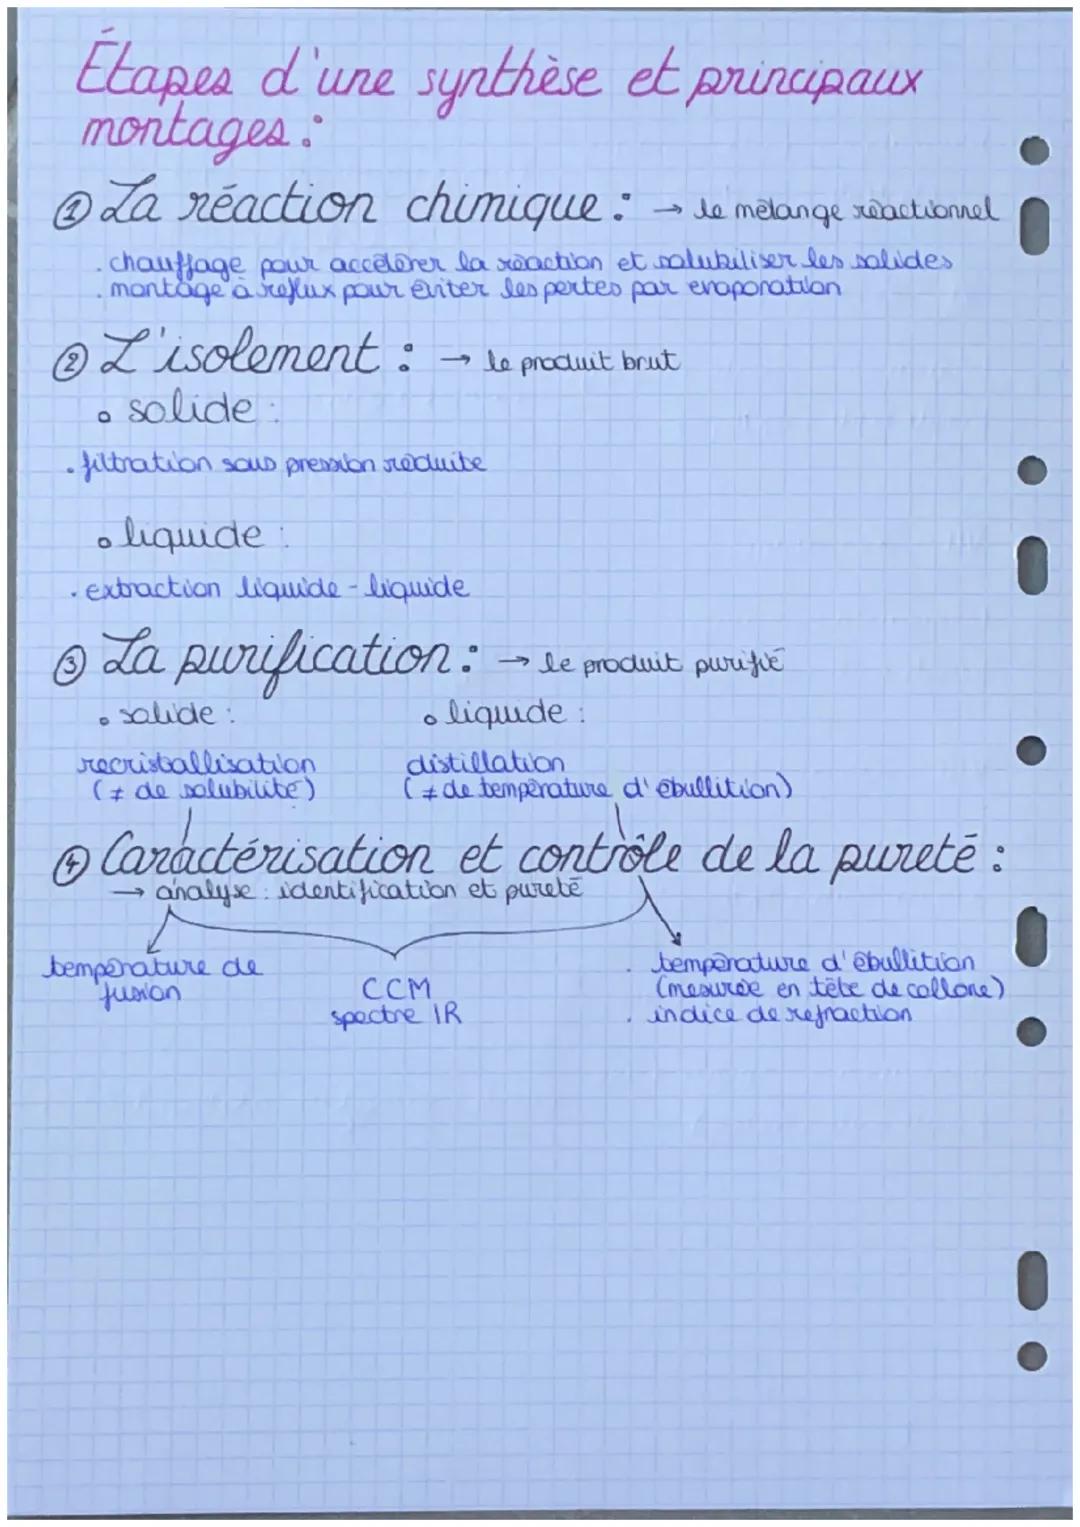 Étapes d'une synthèse et principaux
montages :
① La réaction chimique : → le mélange réactionnel
. chauffage pour accélérer la réaction et solubiliser les solides
. montage à reflux pour éviter les pertes par evaporation
② L'isolement : → le produit brut
• solide :
. filtration sous pression réduite
• liquide :
. extraction liquide - liquide
③ La purification : → le produit purifié
• solide : • liquide :
recristallisation distillation
(≠ de solubilité) (≠ de température d'ébullition)
④ Caractérisation et contrôle de la pureté :
→ analyse : identification et pureté
température de fusion
CCM
spectre IR
. température d'ébullition
(mesurée en tête de collone)
. indice de refraction